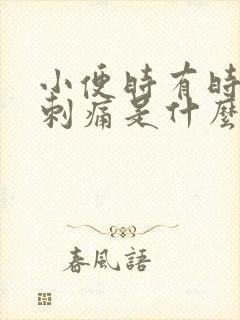 小便時有時
刺痛是什麼
春風語